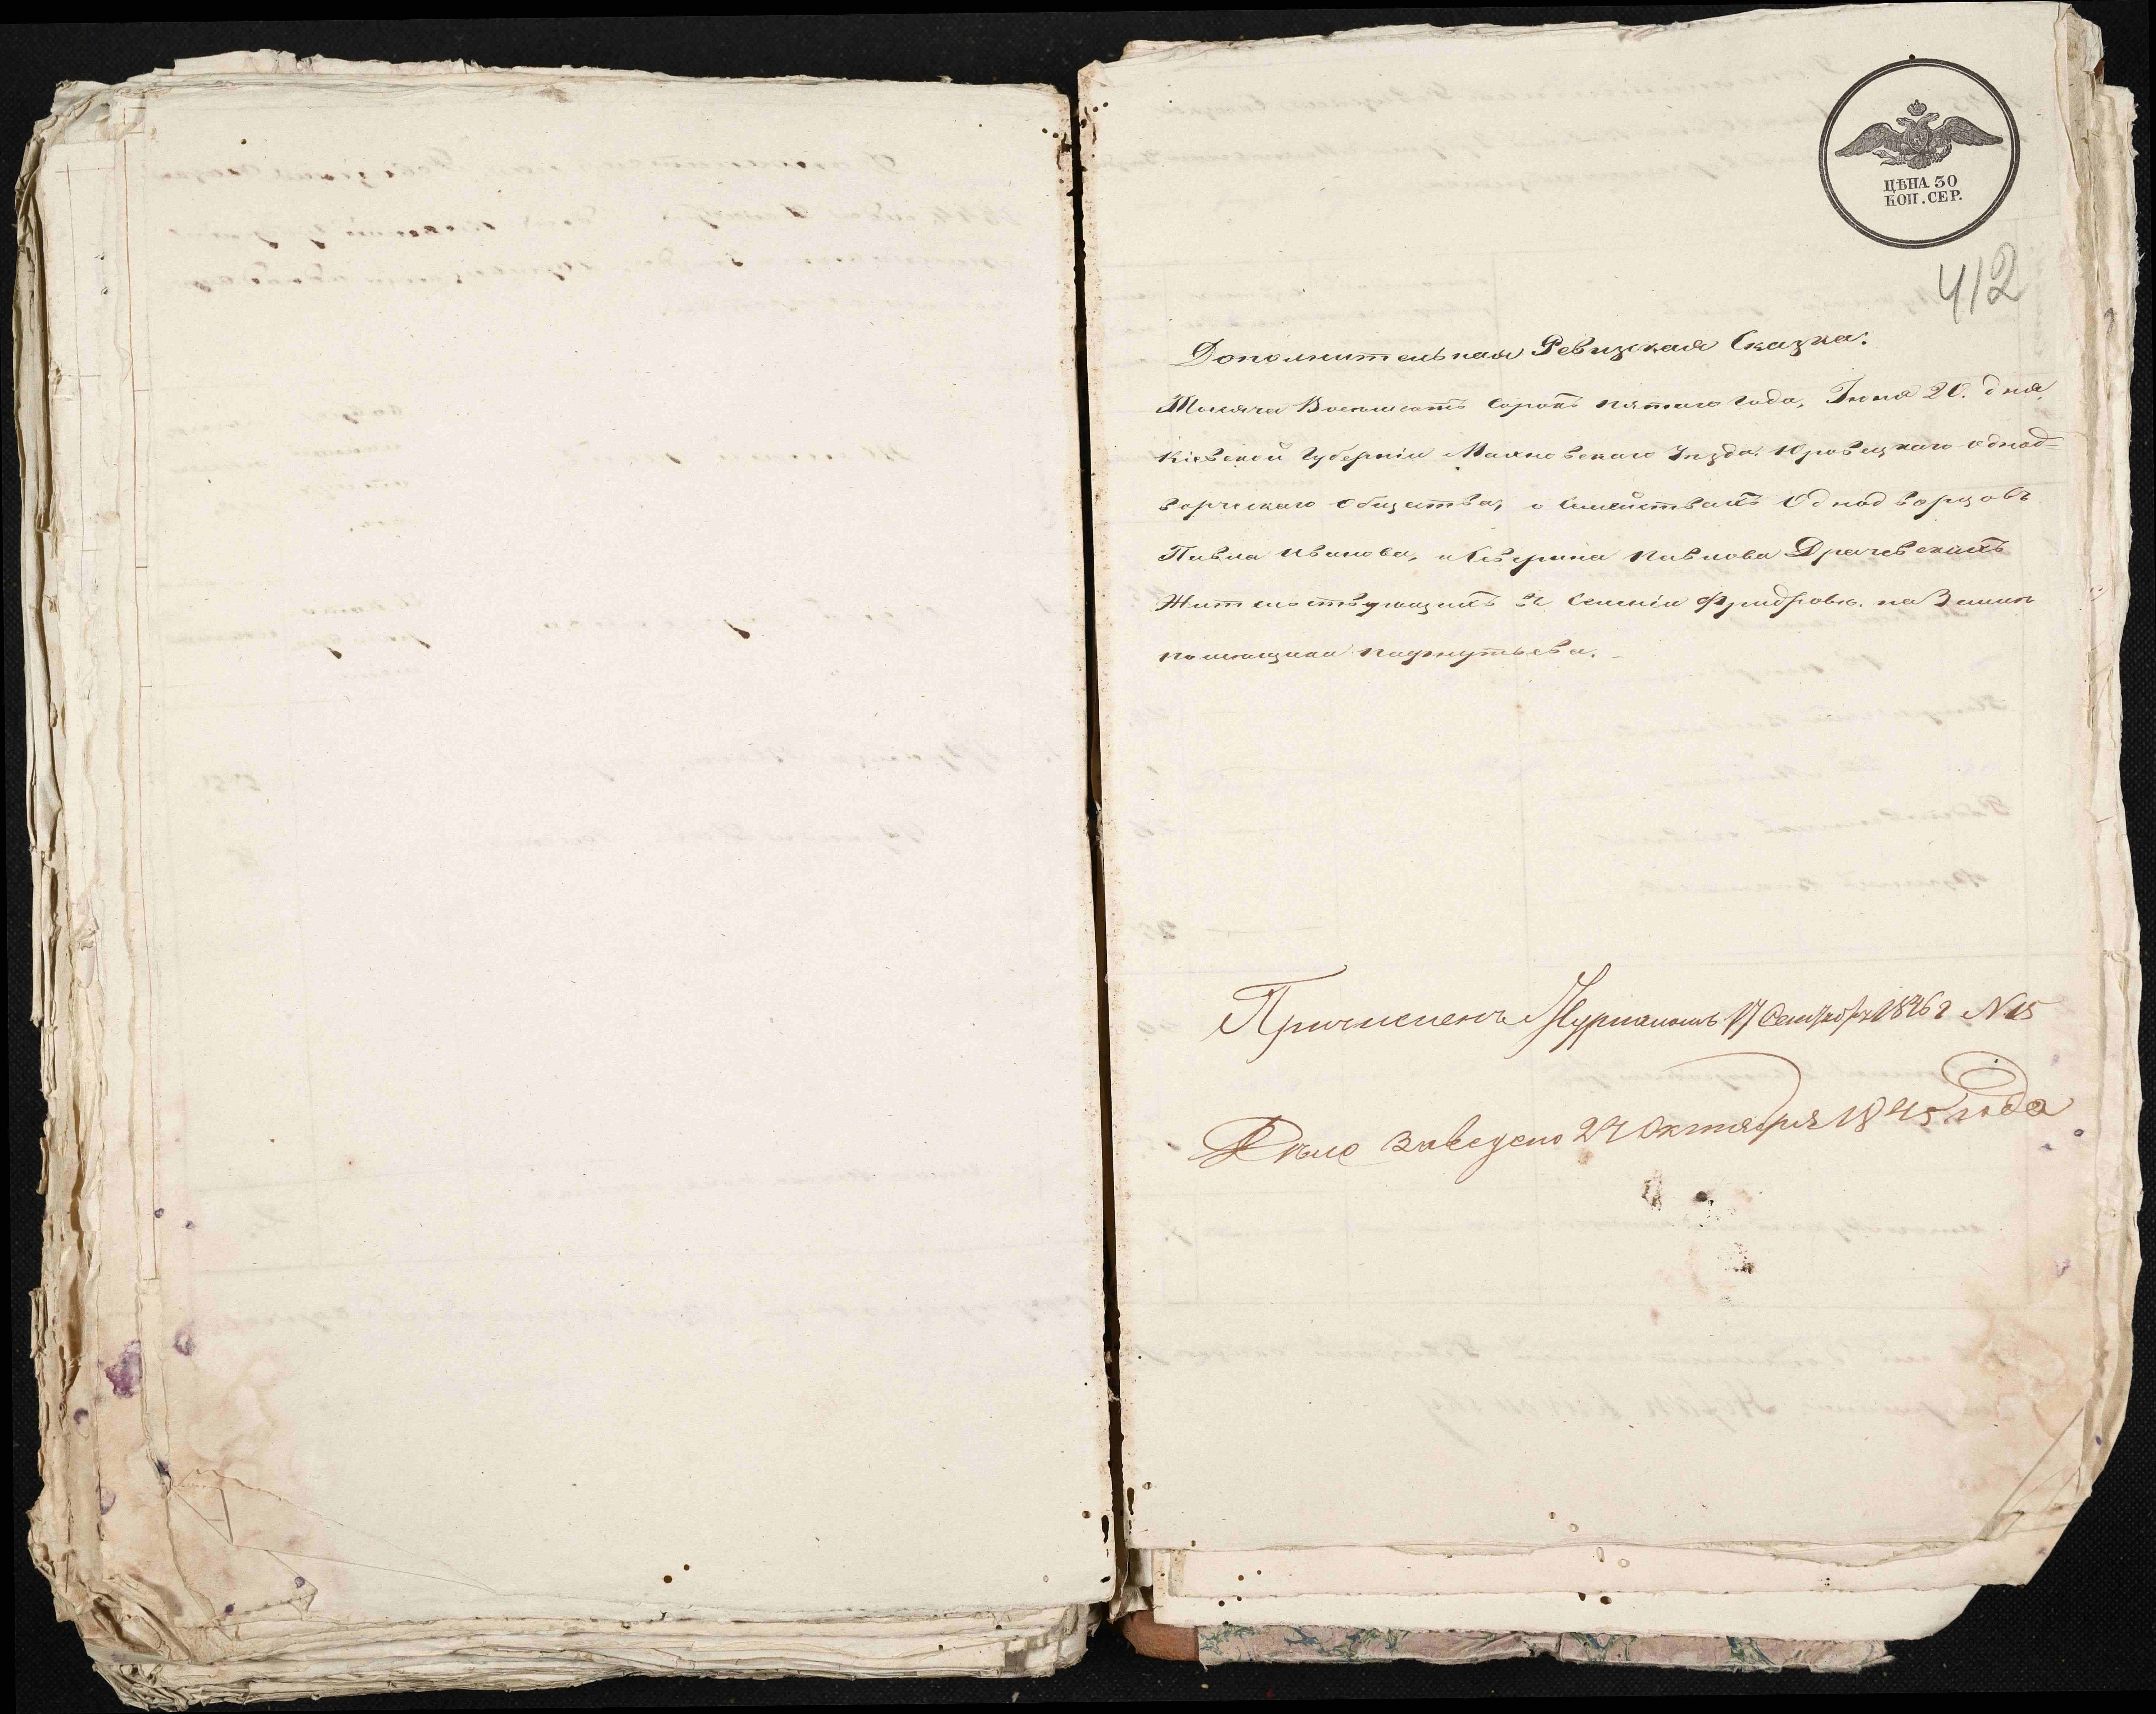 ЦѢНА 30
КОП. СЕР.
412
Дополнительная Ревизская Сказка.
Тысяча Восемьсотъ Сорокъ пятаго Года, Іюня 20. дня,
Кіевской Губерніи Махновскаго Уѣзда. Юровецкаго Однод=
ворческаго Общества, о Семействахъ Однодворцовъ
Павла Иванова, и Северина Павлова Драчевскихъ
Жительствующихъ въ Селеніи на Землѣ
помещика
Причисленъ Журналомъ 17 Сентября 1846 г N 15
Дѣло Заведено 27 Октября 1845 года